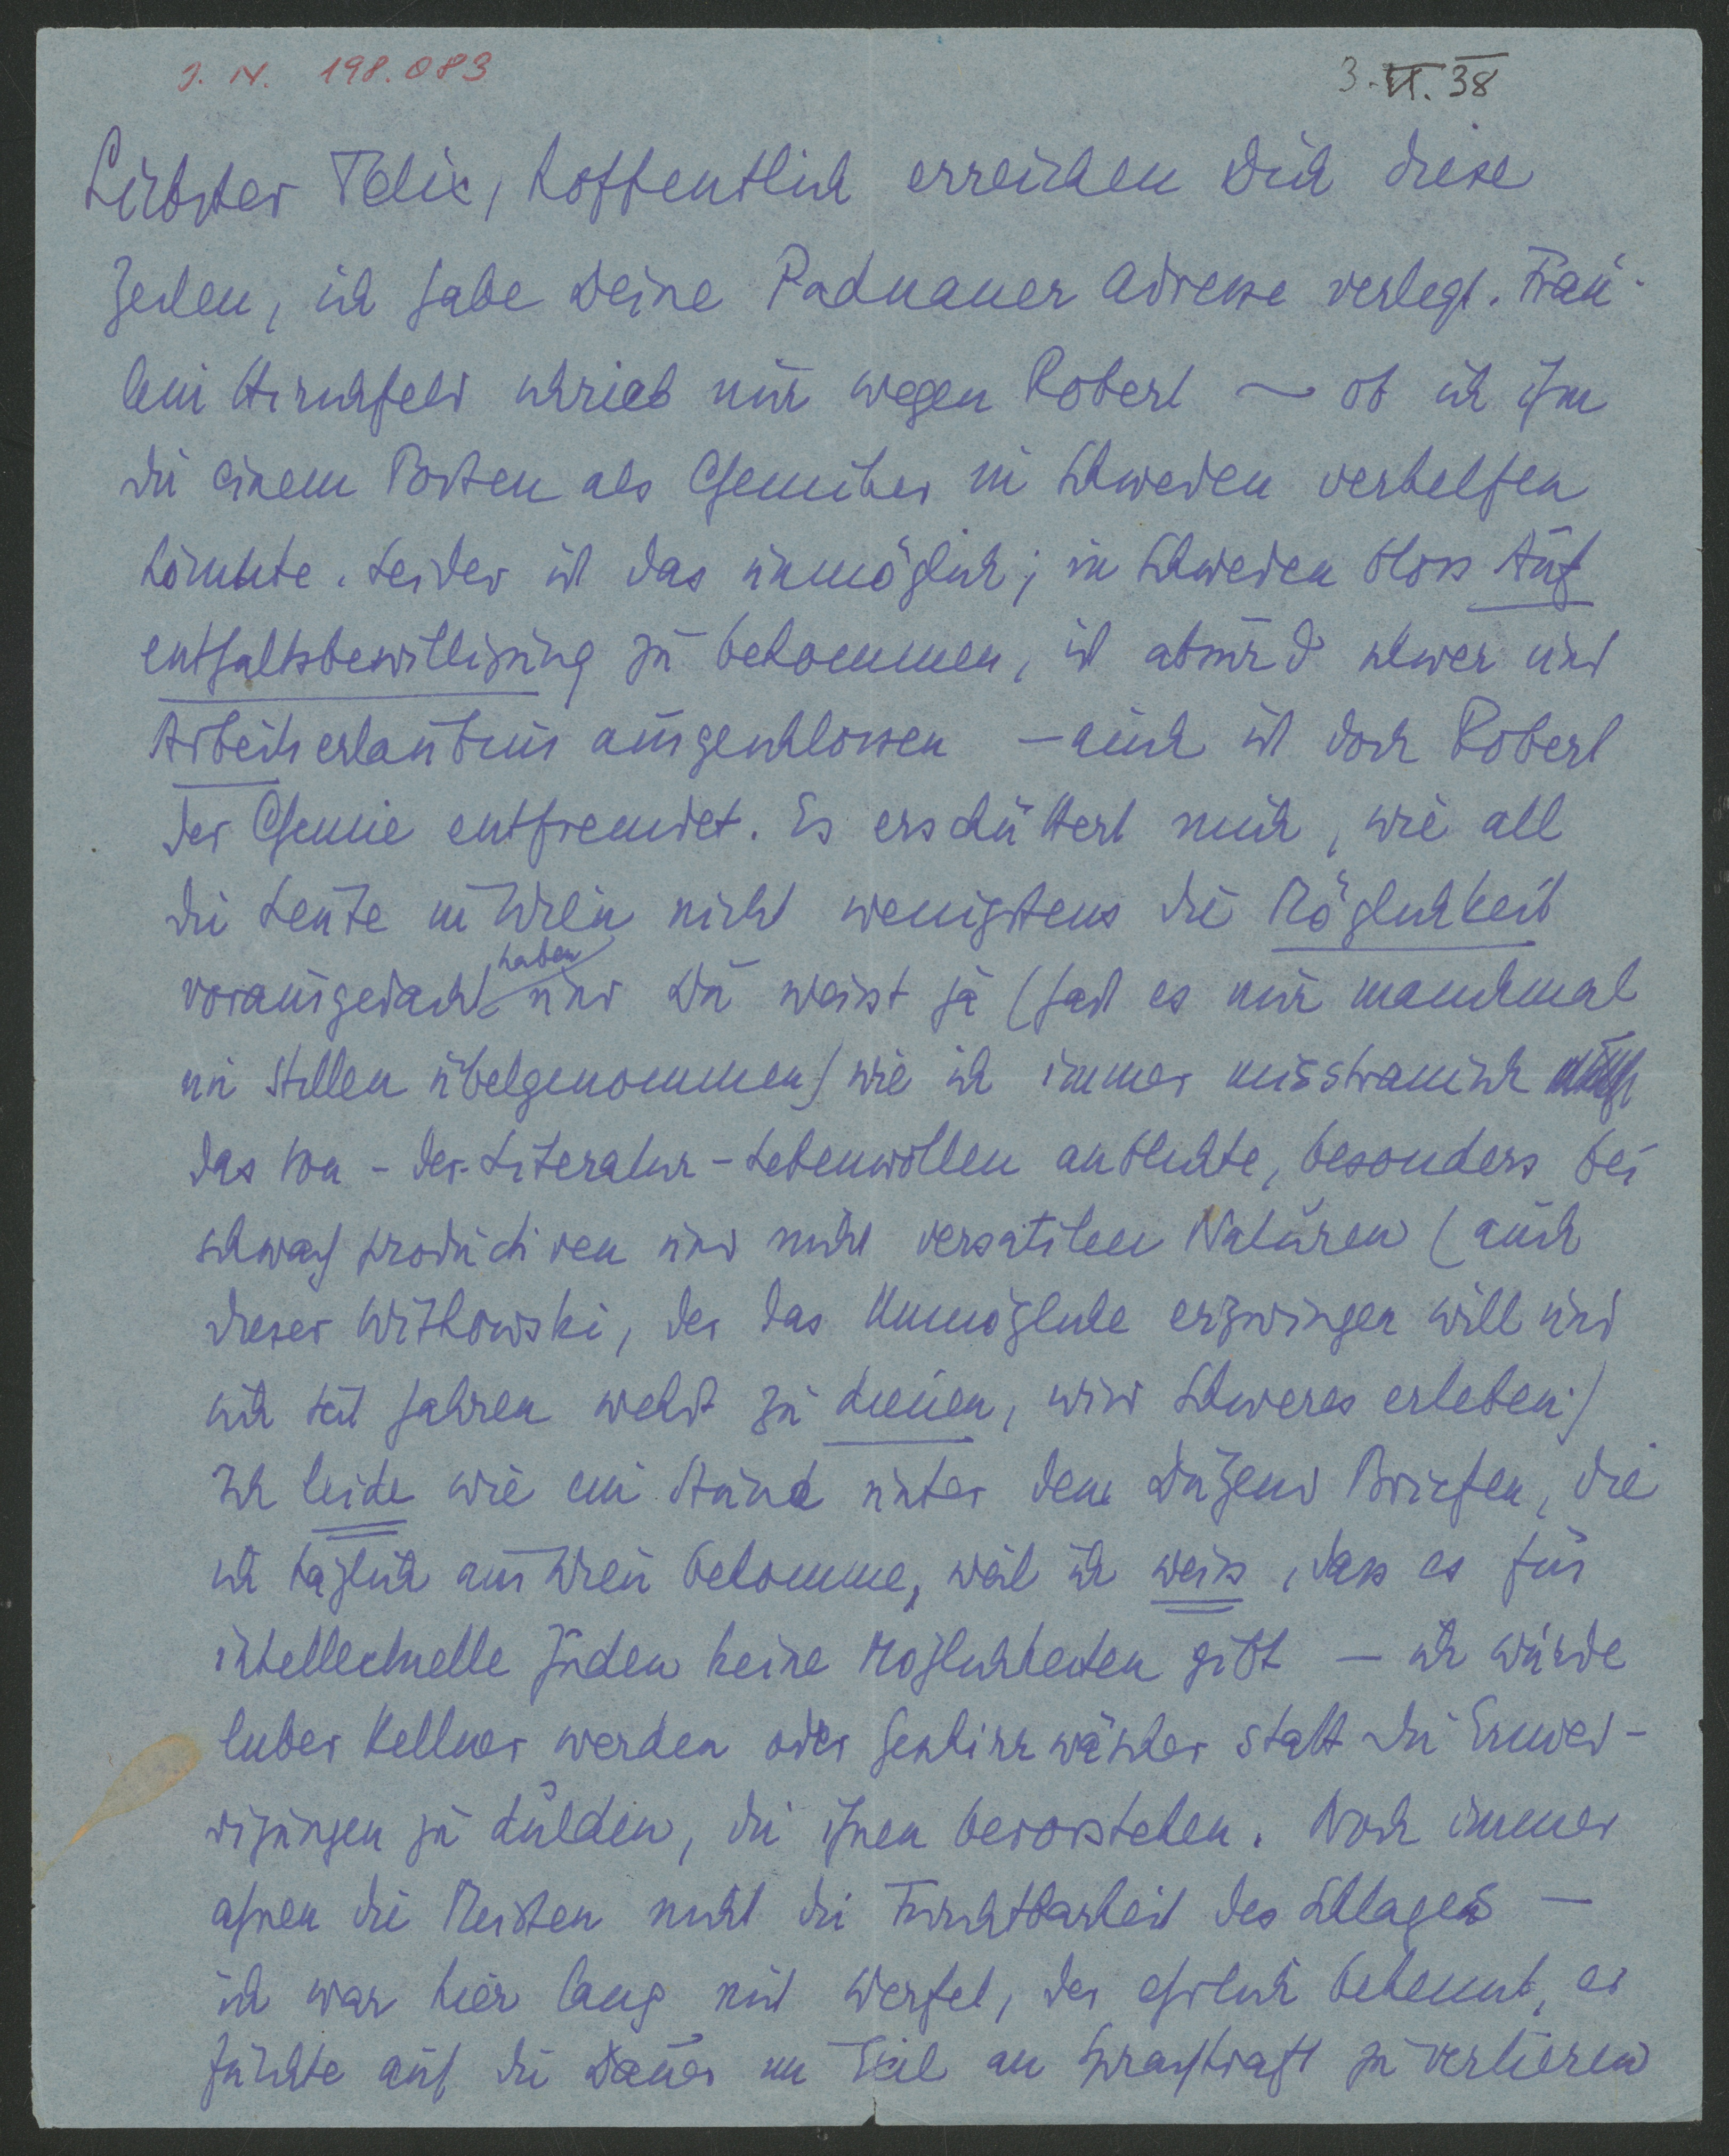 J. N. 198.083
3.VI.38
Liebster Felix, hoffentlich erreichen Dich diese
Zeilen, ich habe Deine Paduaner Adresse verlegt. Fräu-
lein Hirschfeld schrieb mir wegen Robert – ob ich ihm
zu einem Posten als Chemiker in Schweden verhelfen
könnte. Leider ist das unmöglich; in Schweden bloss Auf
enthaltsbewilligung zu bekommen, ist absurd schwer und
Arbeitserlaubnis ausgeschlossen – auch ist doch Robert
der Chemie entfremdet. Es erschüttert mich, wie all
die Leute in Wien nicht wenigstens die Möglichkeit
vorausgedacht haben und Du weisst ja (hast es mir manchmal
im Stillen übelgenommen) wie ich immer misstrauisch
das Von-der-Literatur-Lebenwollen anblickte, besonders bei
schwach productiven und nicht versatilen Naturen (auch
dieser Witkowski, der das Unmögliche erzwingen will und
sich seit Jahren wehrt zu dienen, wird Schweres erleben.)
Ich leide wie ein Hund unter dem Dutzend Briefen, die
ich täglich aus Wien bekomme, weil ich weiss, dass es für
intellectuelle Juden keine Möglichkeiten gibt – ich würde
lieber Kellner werden oder Geschirrwäscher statt die Ernied-
rigungen zu dulden, die ihnen bevorstehen. Noch immer
ahnen die Meisten nicht die Furchtbarkeit des Schlages –
ich war hier lang mit Werfel, der ehrlich bekennt, er
fürchte auf die Dauer im Exil an Sprachkraft zu verlieren